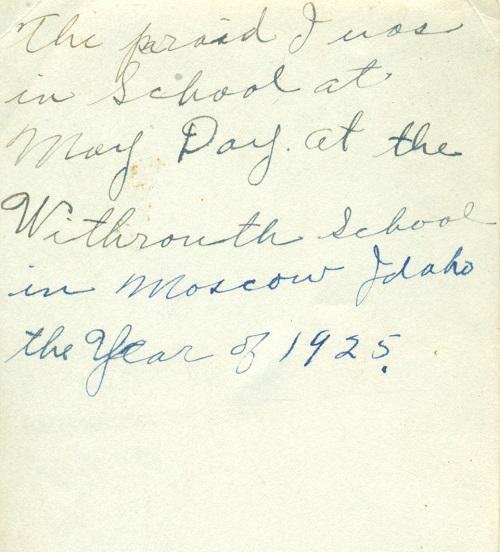 The praid I was
in School at
May Day. at the
Withrouth School
in Moscow Idaho
the Year of 1925.